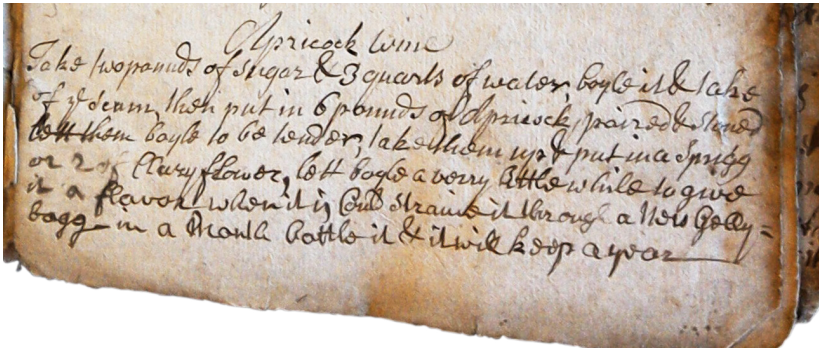 Apricock Wine
Take two pounds of Sugar & 3 quarts of water boyle it & take
of ye Scum, then put in 6 pounds of Apricock, paired & stoned
lett them boyle to be tender, take them up & put in a Sprigg
or 2 of Clary flower, lett boyle a verry little while to give
it a flavor when it is Could straine it through a New Gelly=
bagg in a Month bottle it & it will keep a year